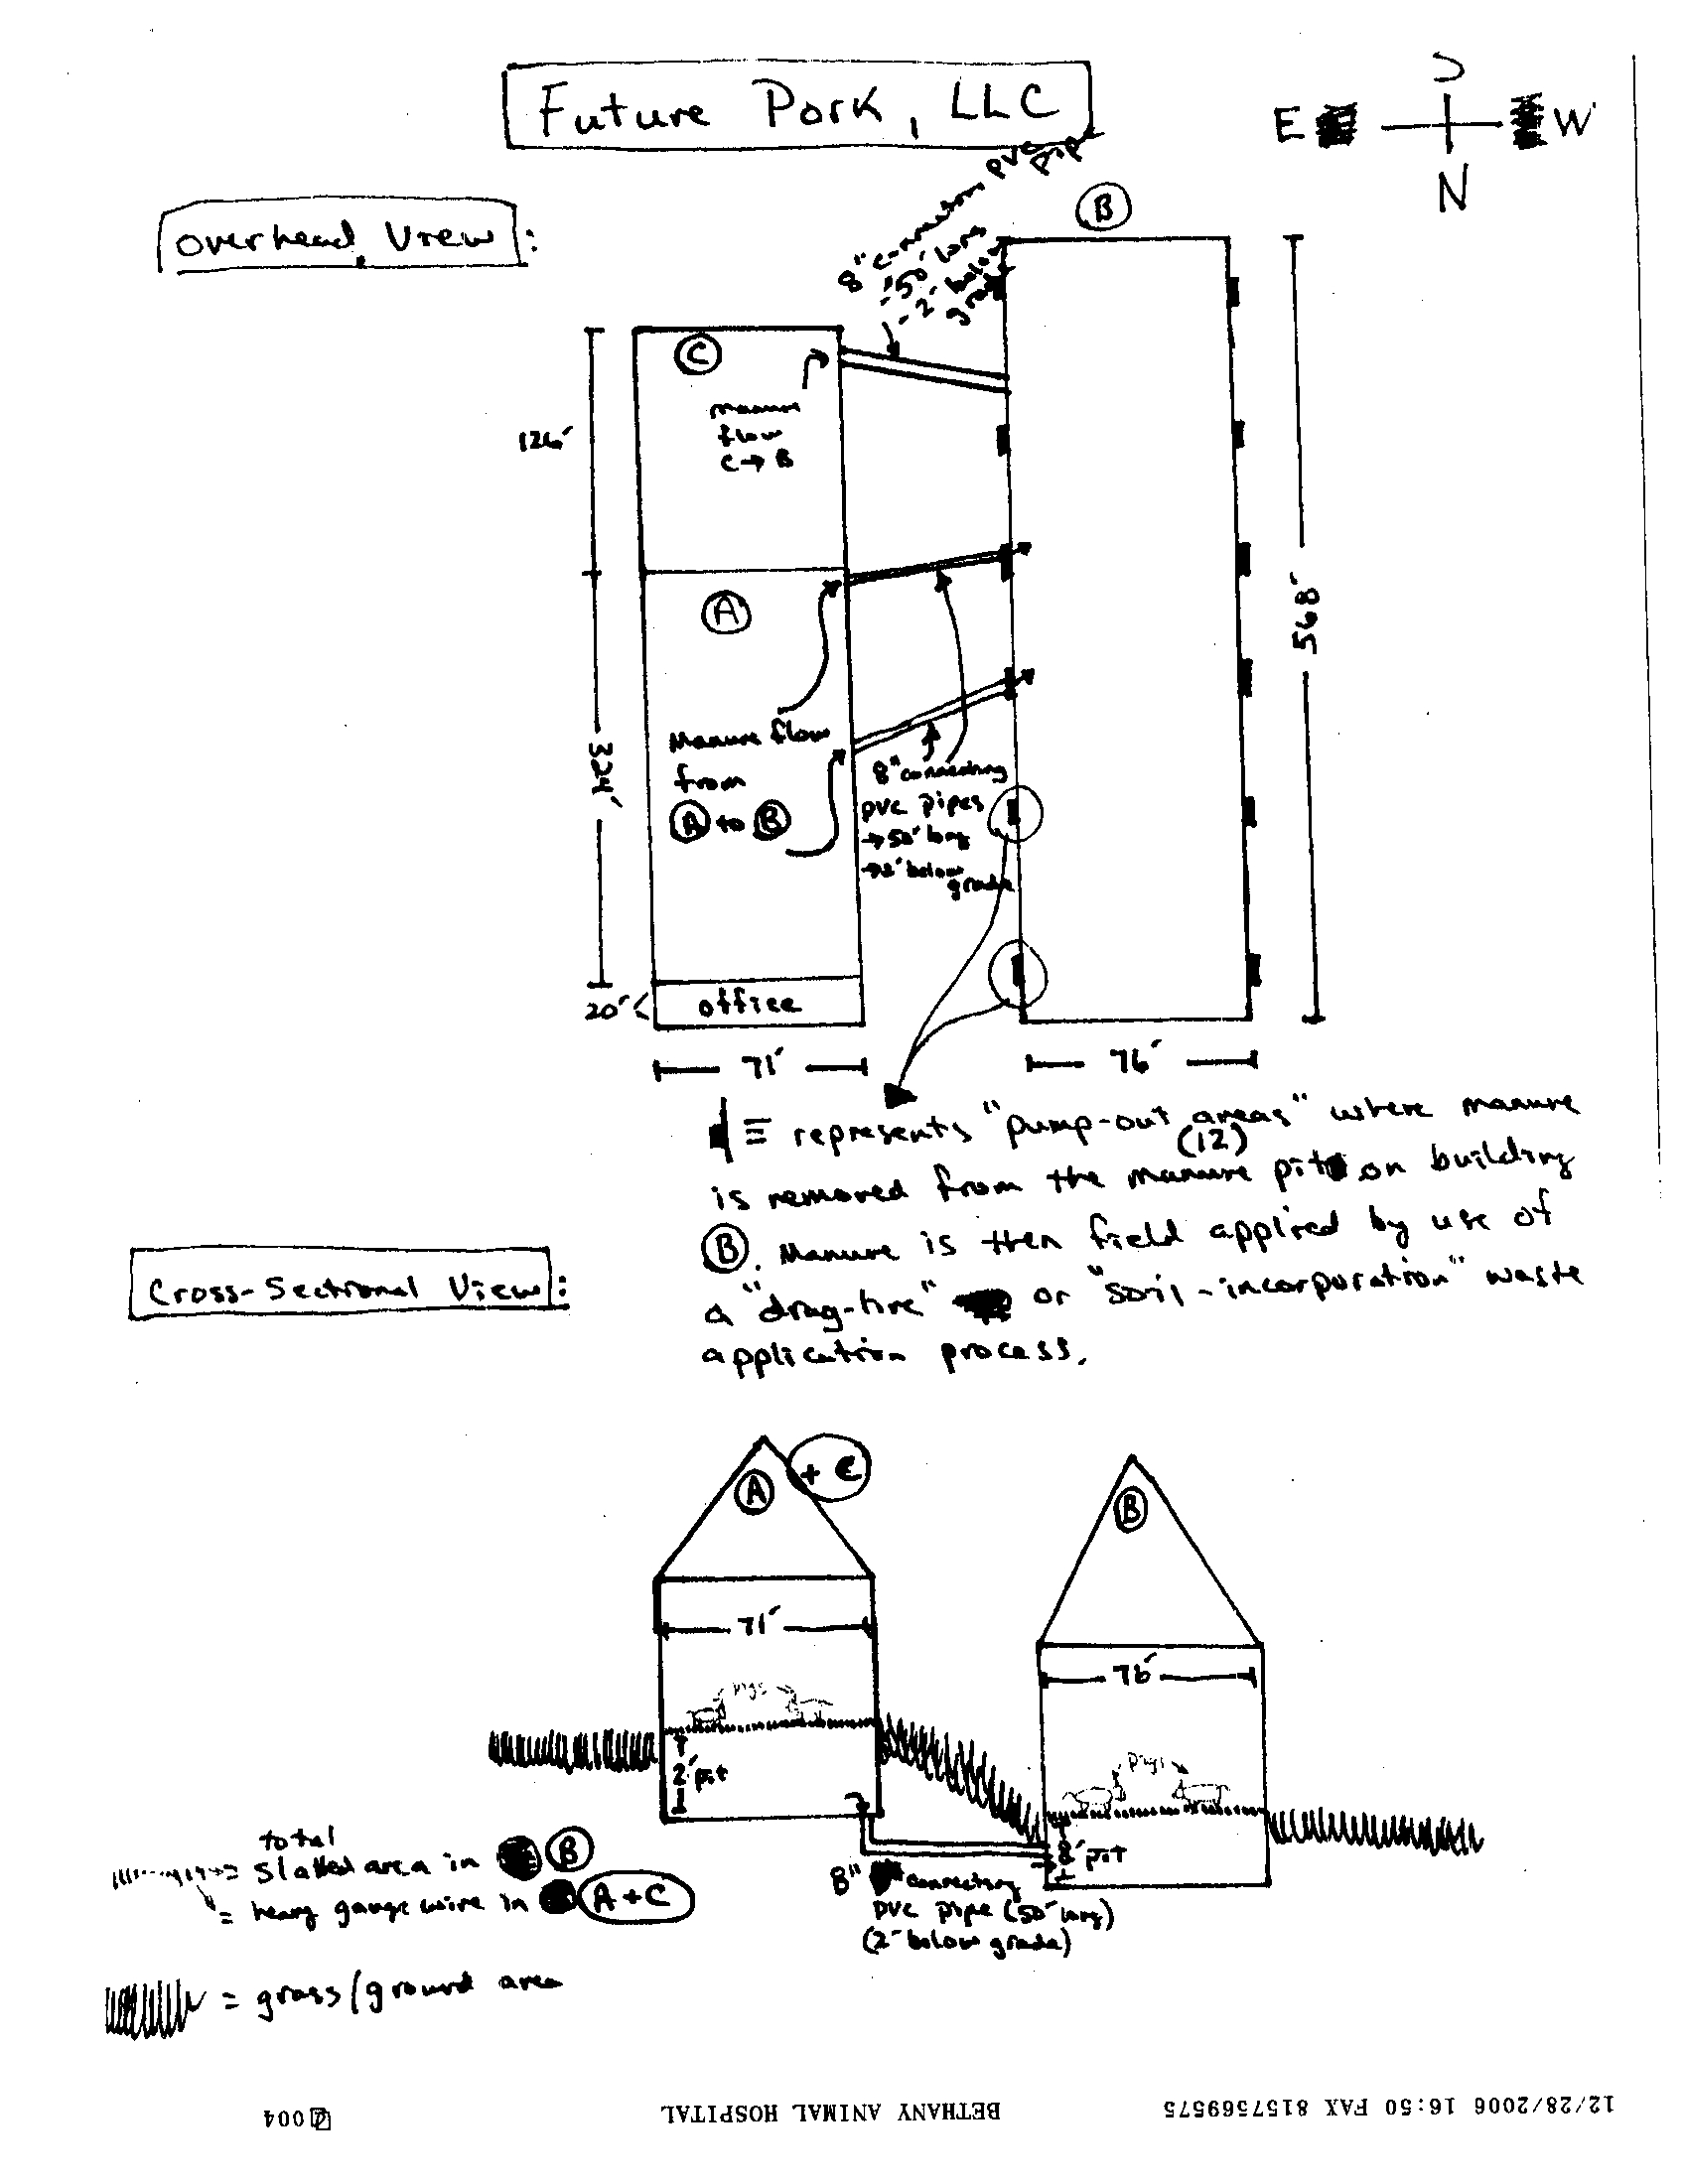 Future Pork, LLC
E W
N
Overhead View:
8" connecting PVC pipe
- 50' long
- 2' below
grade
B
C
126'
manure
flow
C → B
A
568'
324'
Manure flow
from
A to B
8" connecting
PVC pipes
→ 50' long
→ 2' below
grade
20'
office
71'
76'
≡ represents "pump-out areas" where manure
(12)
is removed from the manure pit on building
B. Manure is then field applied by use of
a "drag-line" or "soil-incorporation" waste
application process.
Cross-Sectional View:
A + C
B
71'
76'
pigs
pigs
2' pit
8' pit
8" connecting
PVC pipe (50' long)
(2' below grade)
total
= slatted area in B
= heavy gauge wire in A+C
= grass/ground area
12/28/2006 16:50 FAX 8157569575
BETHANY ANIMAL HOSPITAL
004